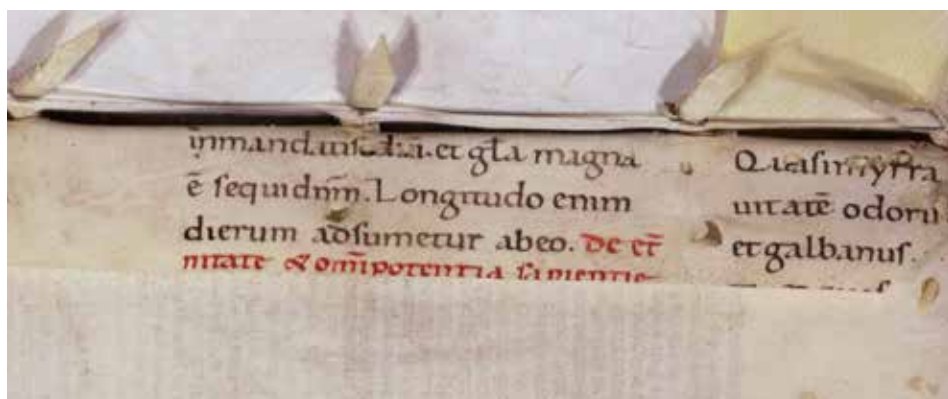 inmandatis dei. et gl̄a magna
ē sequi dnm̄. Longitudo enim
dierum adsumetur abeo. De et̄
nitate & om̄ipotentia sapientie
Quasi myrra
uitatē odoris
et galbanus.